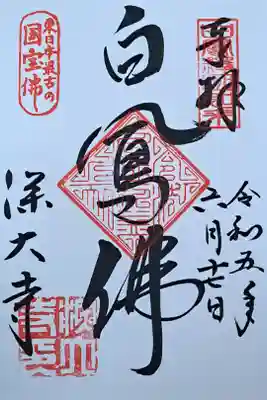 奉拝
白鳳佛
深大寺
令和五年
六月十七日
東日本最古の
国宝佛